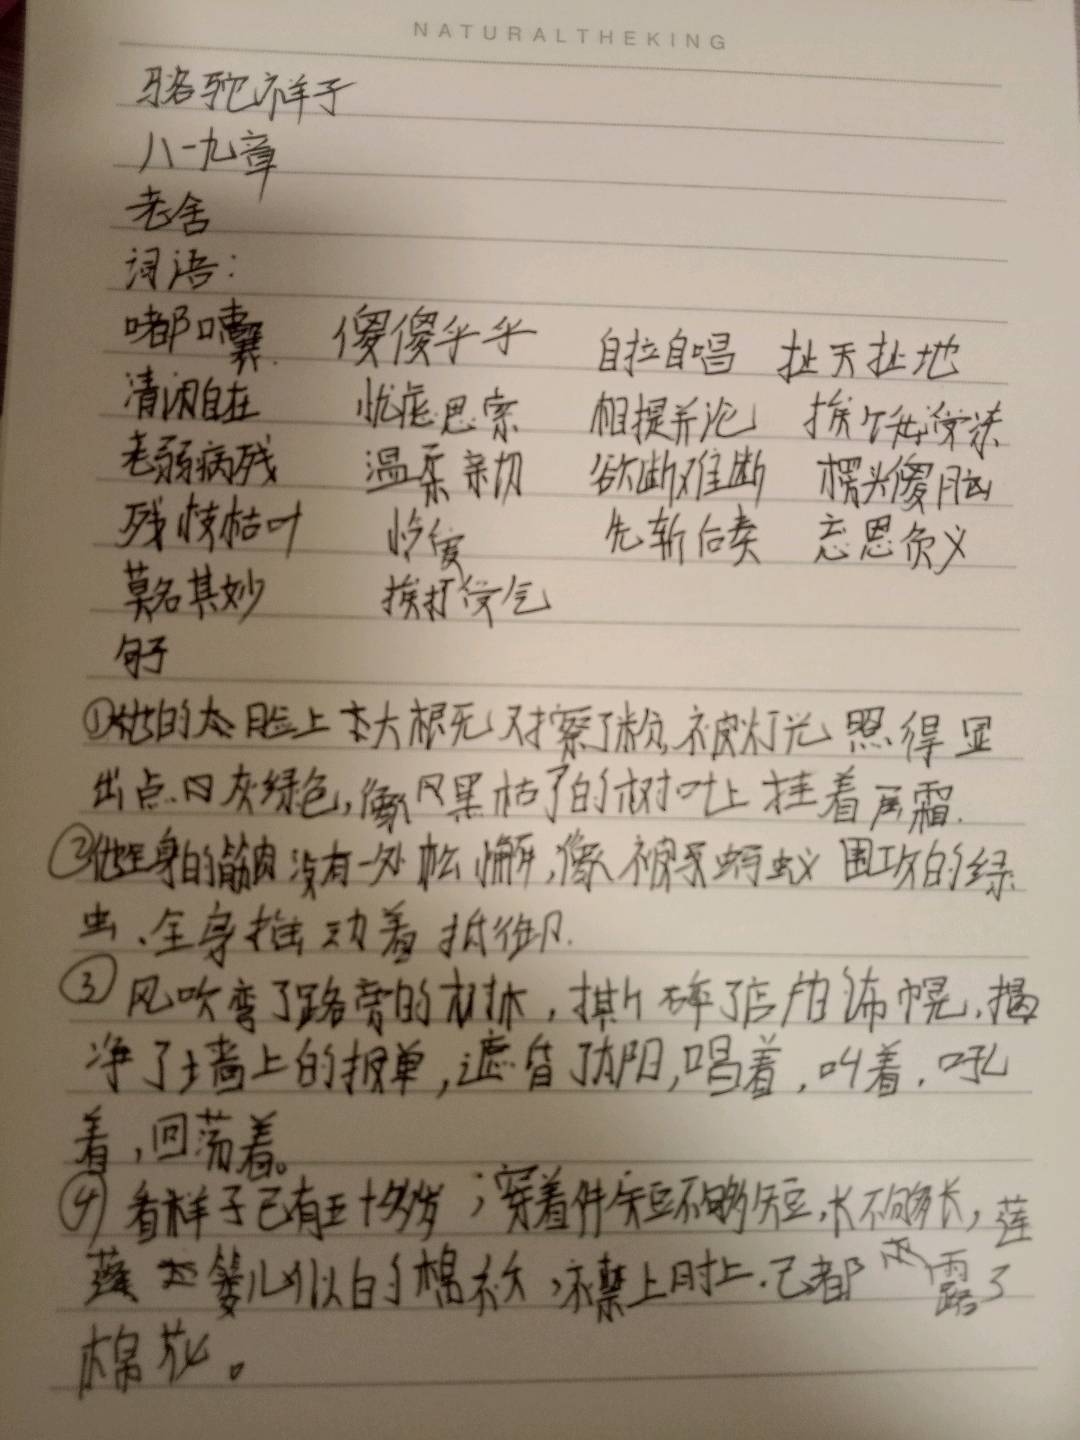 NATURALTHEKING
骆驼祥子
八一九章
老舍
词语：
嘟囔 傻傻乎乎 自拉自唱 扯天扯地
清闲自在 忧虑思索 相提并论 挨饿受冻
老弱病残 温柔亲切 欲断难断 楞头傻脑
残枝枯叶 怜爱 先斩后奏 忘恩负义
莫名其妙 挨打受气
句子
①她的脸上大概又擦了粉,被灯光照得显
出点灰绿色,像黑枯了的树叶上挂着层霜.
②他全身的筋肉没有一处松懈,像被蚂蚁围攻的绿
虫、全身摇动着抵御.
③风吹弯了路旁的树木,撕碎了店户的布幌,揭
净了墙上的报单,遮昏了太阳,唱着,叫着,吼
着,回荡着。
④看样子已有五十多岁,穿着件短不够短,长不够长,莲
蓬篓儿似的棉衣,襟上肘上.已都露了
棉花。